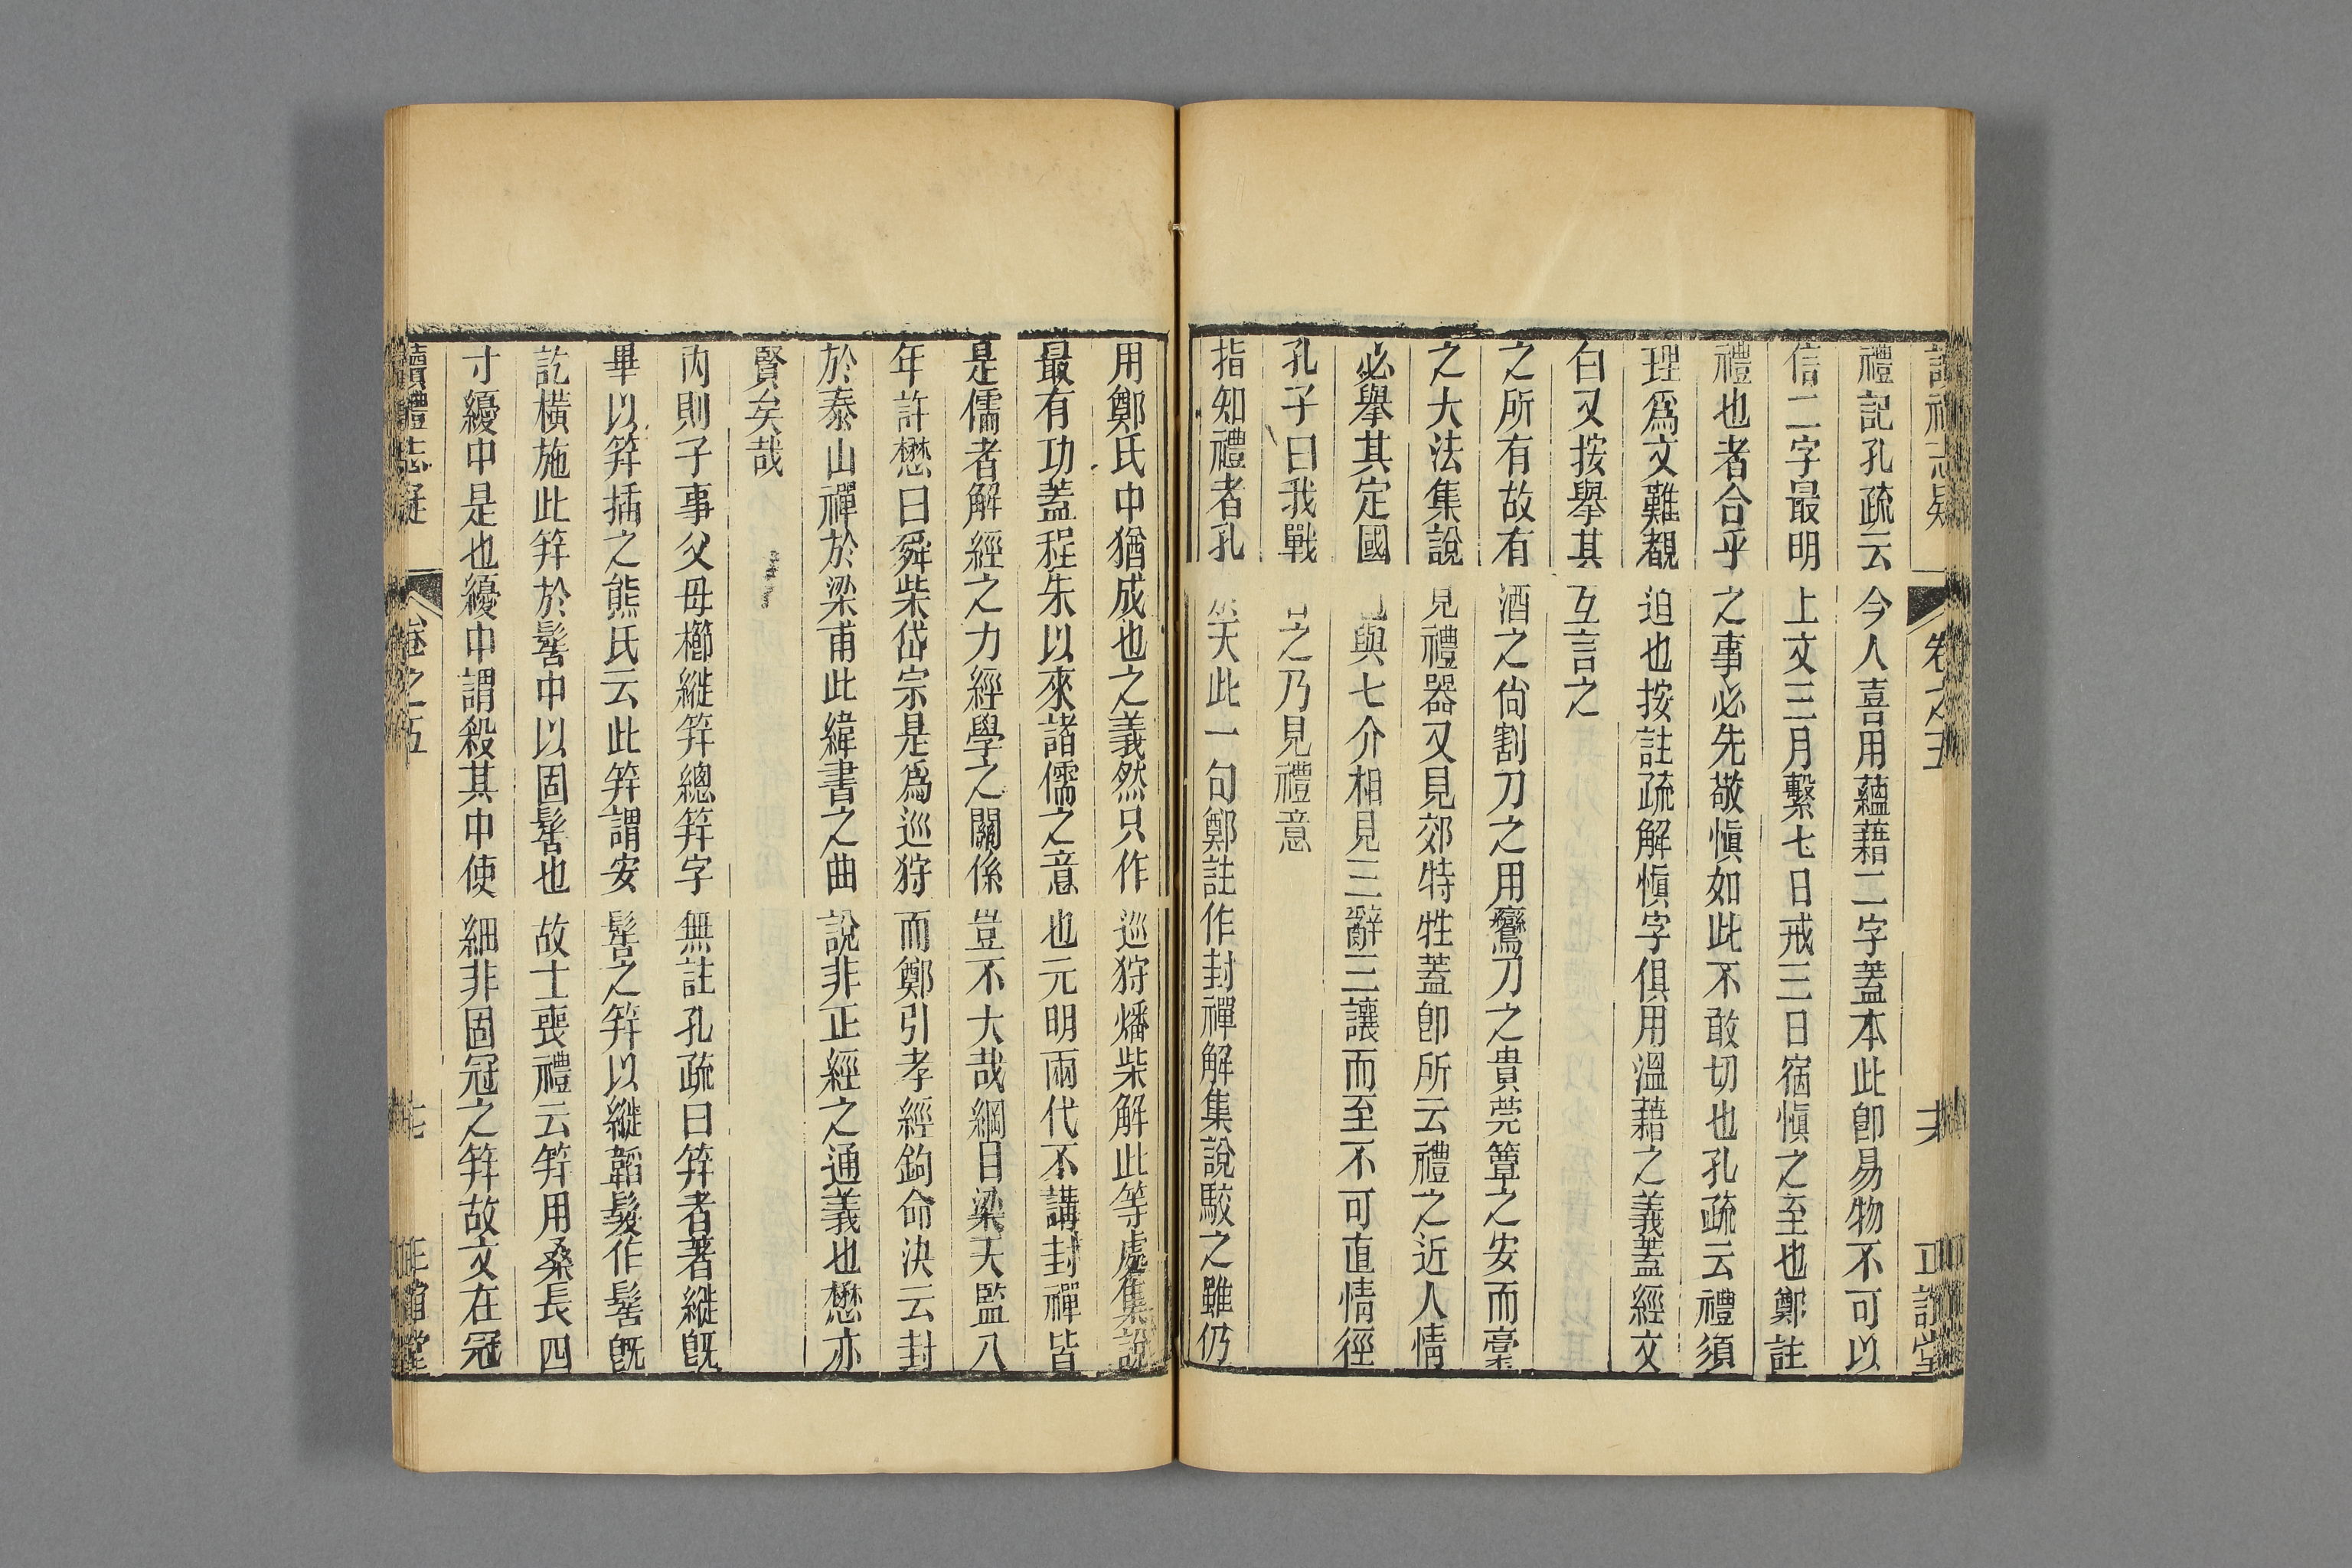 卷之五
禮記孔疏云今人喜用蘊藉二字蓋本此卽易物不可以
信二字最明上文三月繫七日戒三日宿愼之至也鄭註
禮也者合乎之事必先敬愼如此不敢切也孔疏云禮須
理爲文難覩迫也按註疏解愼字俱用溫藉之義蓋經文
白又按舉其互言之
之所有故有酒之尙割刀之用鸞刀之貴莞簟之安而稾
之大法集說見禮器又見郊特牲蓋卽所云禮之近人情
必舉其定國與七介相見三辭三讓而至不可直情徑
孔子曰我戰之乃見禮意
指知禮者孔天此一句鄭註作封禪解集說駮之雖仍
用鄭氏中猶成也之義然只作巡狩燔柴解此等處集說
最有功蓋程朱以來諸儒之意也元明兩代不講封禪皆
是儒者解經之力經學之關係豈不大哉綱目梁天監八
年許懋曰舜柴岱宗是爲巡狩而鄭引孝經鉤命決云封
於泰山禪於梁甫此緯書之曲說非正經之通義也懋亦
賢矣哉
內則子事父母櫛縰筓總筓字無註孔疏曰筓者著縰旣
畢以筓插之熊氏云此筓謂安髻之筓以縰韜髮作髻旣
訖橫施此筓於髻中以固髻也故士喪禮云筓用桑長四
寸纋中是也纋中謂殺其中使細非固冠之筓故文在冠
讀禮志疑 卷之五 正誼堂